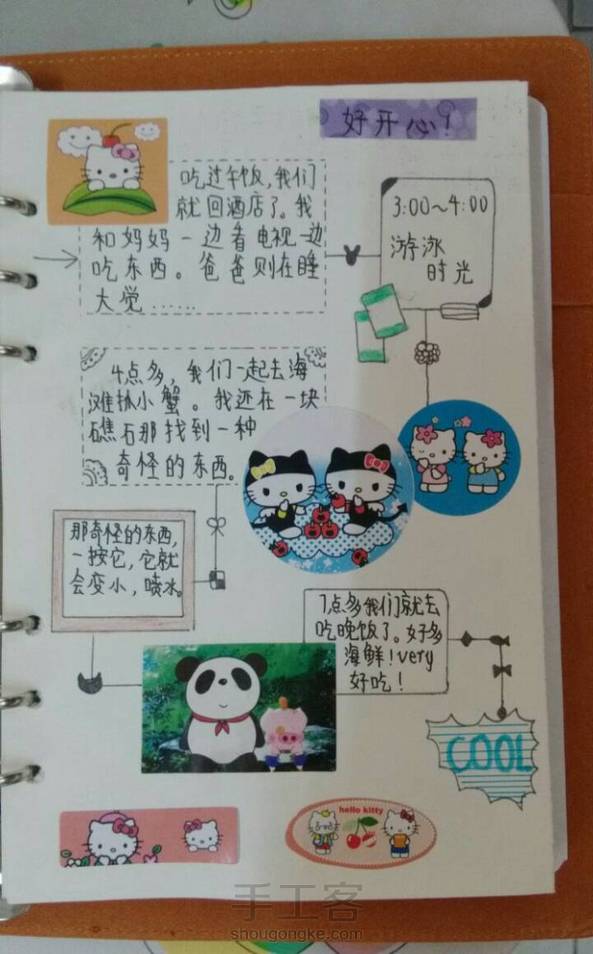 好开心！
吃过午饭,我们
就回酒店了。我
和妈妈一边看电视一边
吃东西。爸爸则在睡
大觉......
3:00～4:00
游泳
时光
4点多，我们一起去海
滩抓小蟹。我还在一块
礁石那找到一种
奇怪的东西。
那奇怪的东西,
一按它,它就
会变小,喷水。
7点多我们就去
吃晚饭了。好多
海鲜!very
好吃!
COOL
hello kitty
手工客
shougongke.com